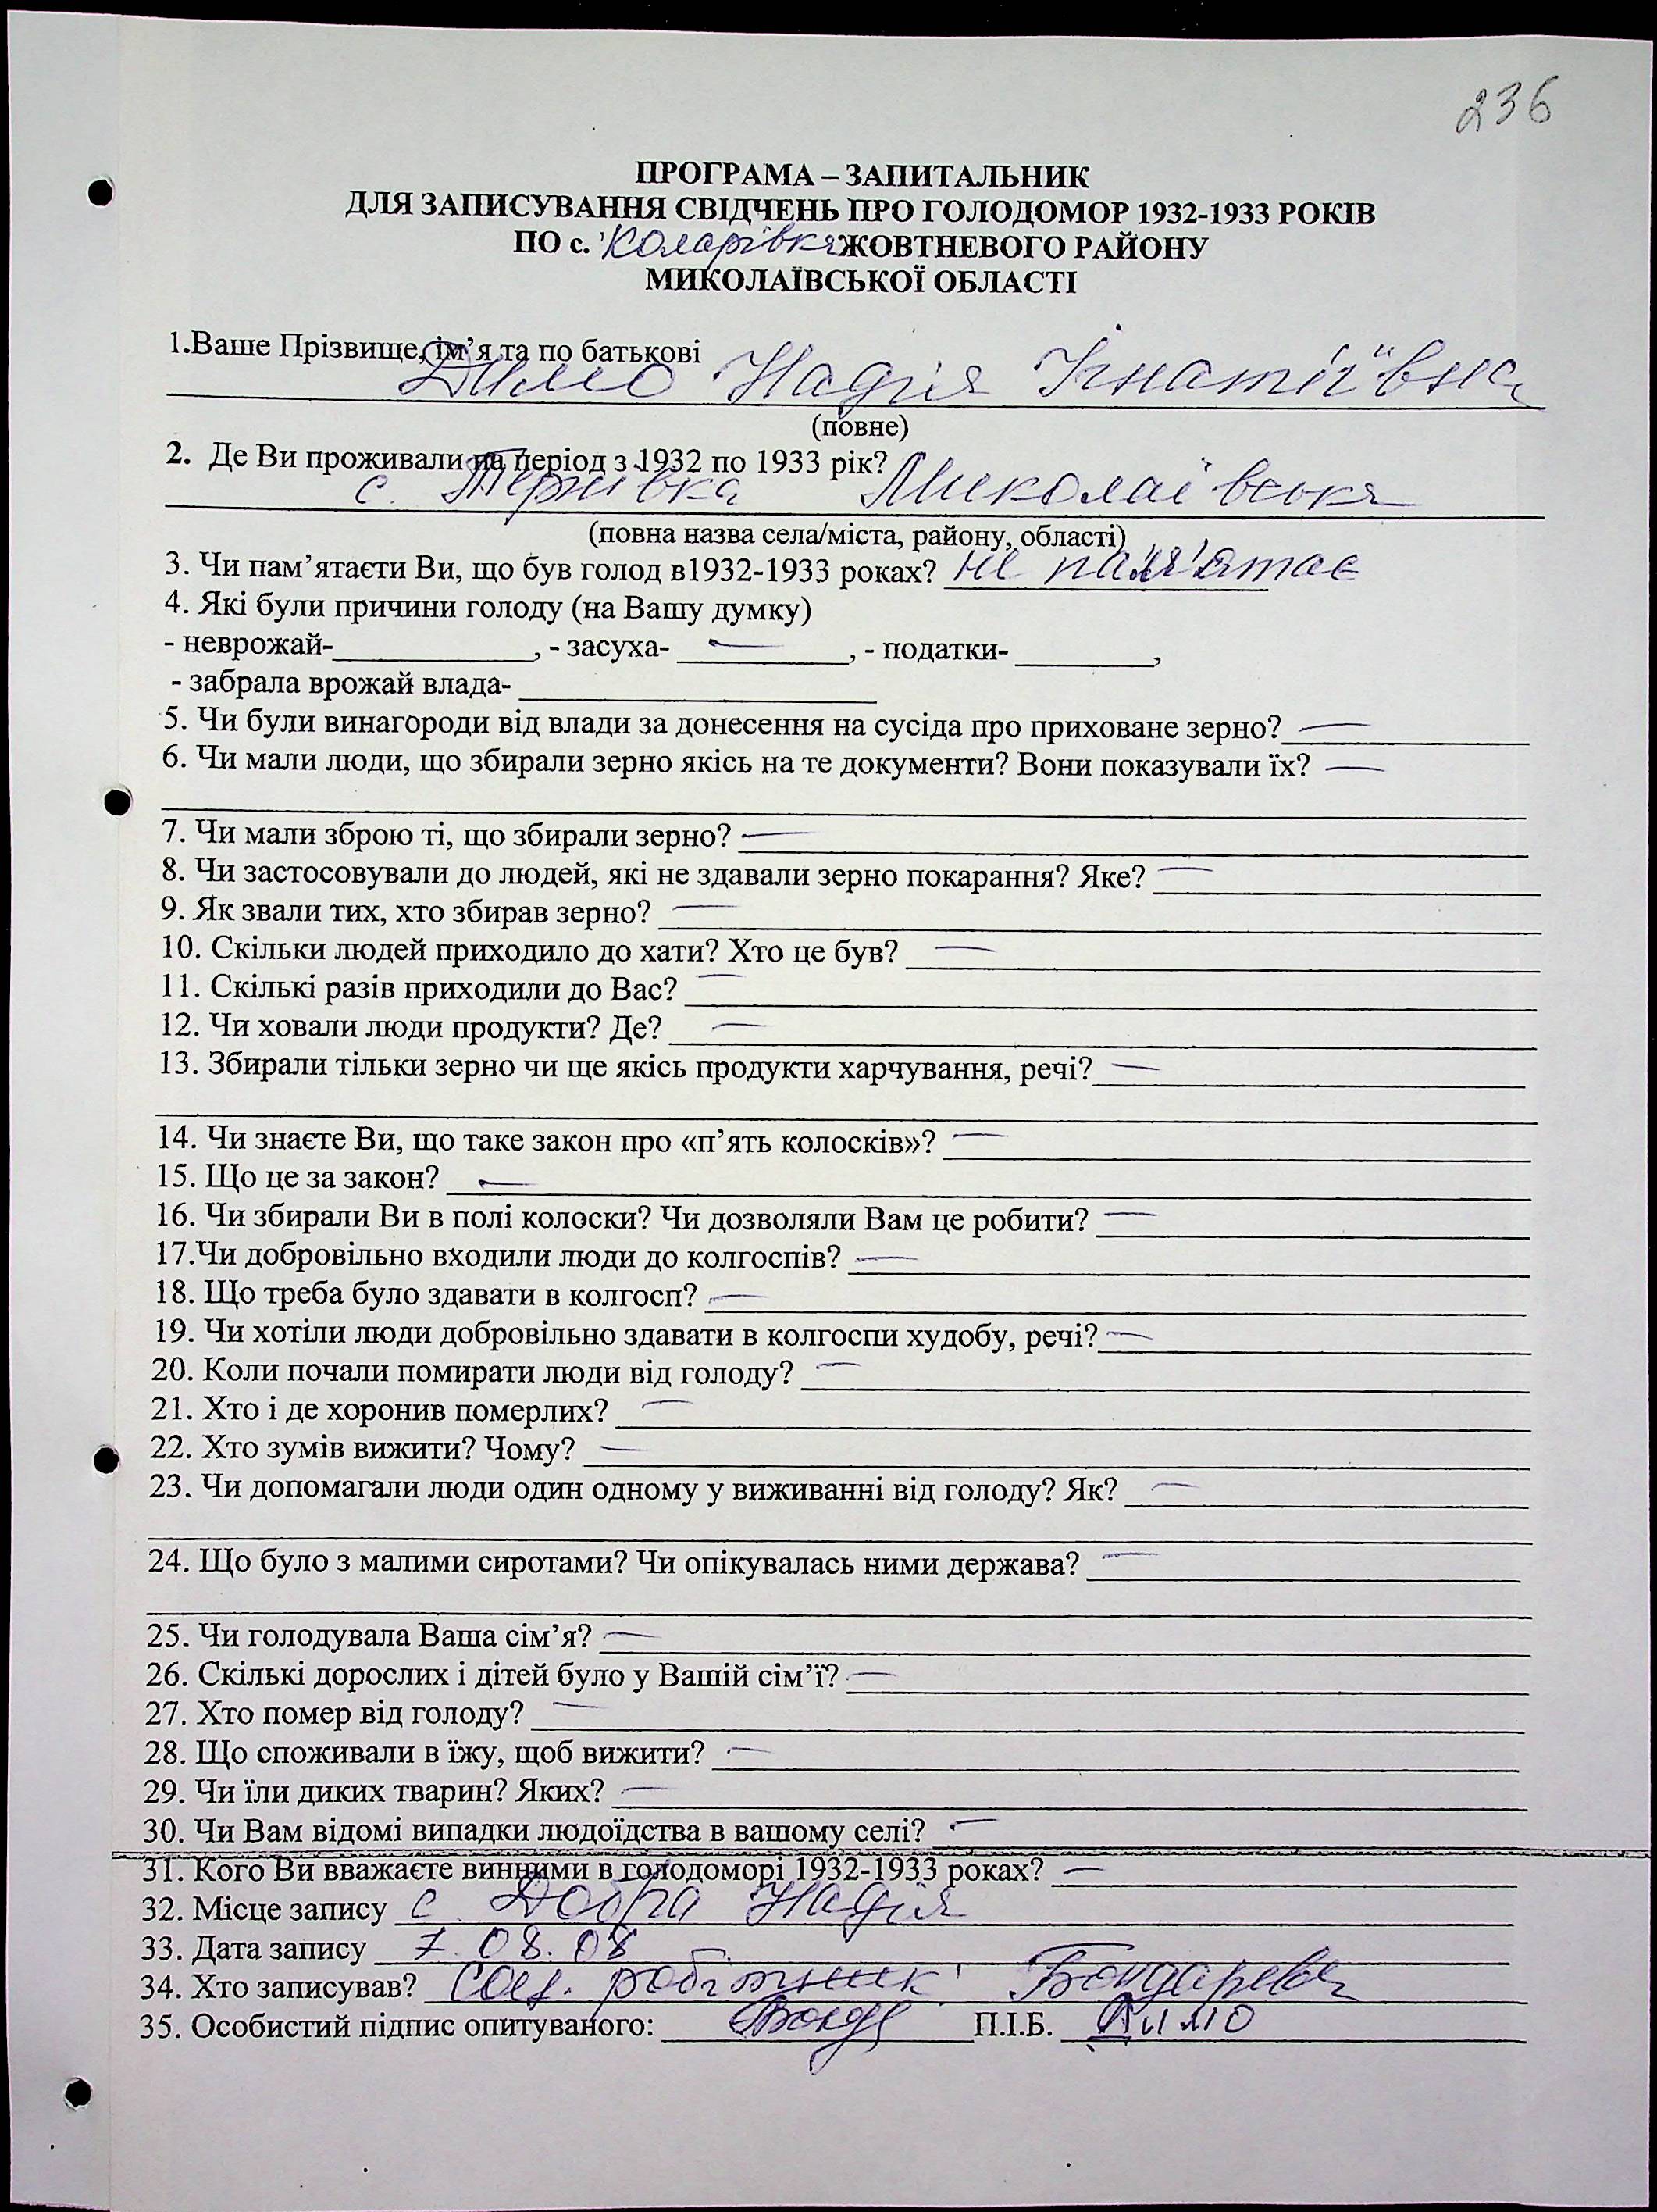 236
ПРОГРАМА – ЗАПИТАЛЬНИК
ДЛЯ ЗАПИСУВАННЯ СВІДЧЕНЬ ПРО ГОЛОДОМОР 1932-1933 РОКІВ
ПО с. Коларівка ЖОВТНЕВОГО РАЙОНУ
МИКОЛАЇВСЬКОЇ ОБЛАСТІ
1.Ваше Прізвище, ім’я та по батькові
Димо Надія Ігнатіївна
(повне)
2. Де Ви проживали на період з 1932 по 1933 рік?
с. Тернівка Миколаївська
(повна назва села/міста, району, області)
3. Чи пам’ятаєти Ви, що був голод в1932-1933 роках? не пам'ятає
4. Які були причини голоду (на Вашу думку)
- неврожай-____________, - засуха- — , - податки- _________,
- забрала врожай влада- ____________
5. Чи були винагороди від влади за донесення на сусіда про приховане зерно? —
6. Чи мали люди, що збирали зерно якісь на те документи? Вони показували їх? —
7. Чи мали зброю ті, що збирали зерно? —
8. Чи застосовували до людей, які не здавали зерно покарання? Яке? —
9. Як звали тих, хто збирав зерно? —
10. Скільки людей приходило до хати? Хто це був? —
11. Скількі разів приходили до Вас? —
12. Чи ховали люди продукти? Де? —
13. Збирали тільки зерно чи ще якісь продукти харчування, речі? —
14. Чи знаєте Ви, що таке закон про «п’ять колосків»? —
15. Що це за закон? —
16. Чи збирали Ви в полі колоски? Чи дозволяли Вам це робити? —
17.Чи добровільно входили люди до колгоспів? —
18. Що треба було здавати в колгосп? —
19. Чи хотіли люди добровільно здавати в колгоспи худобу, речі? —
20. Коли почали помирати люди від голоду? —
21. Хто і де хоронив померлих? —
22. Хто зумів вижити? Чому? —
23. Чи допомагали люди один одному у виживанні від голоду? Як? —
24. Що було з малими сиротами? Чи опікувалась ними держава? —
25. Чи голодувала Ваша сім’я? —
26. Скількі дорослих і дітей було у Вашій сім’ї? —
27. Хто помер від голоду? —
28. Що споживали в їжу, щоб вижити? —
29. Чи їли диких тварин? Яких? —
30. Чи Вам відомі випадки людоїдства в вашому селі? —
31. Кого Ви вважаєте винними в голодоморі 1932-1933 роках? —
32. Місце запису с. Добра Надія
33. Дата запису 7.08.08
34. Хто записував? соц. робітник Бондарева
35. Особистий підпис опитуваного: П.І.Б. Димо